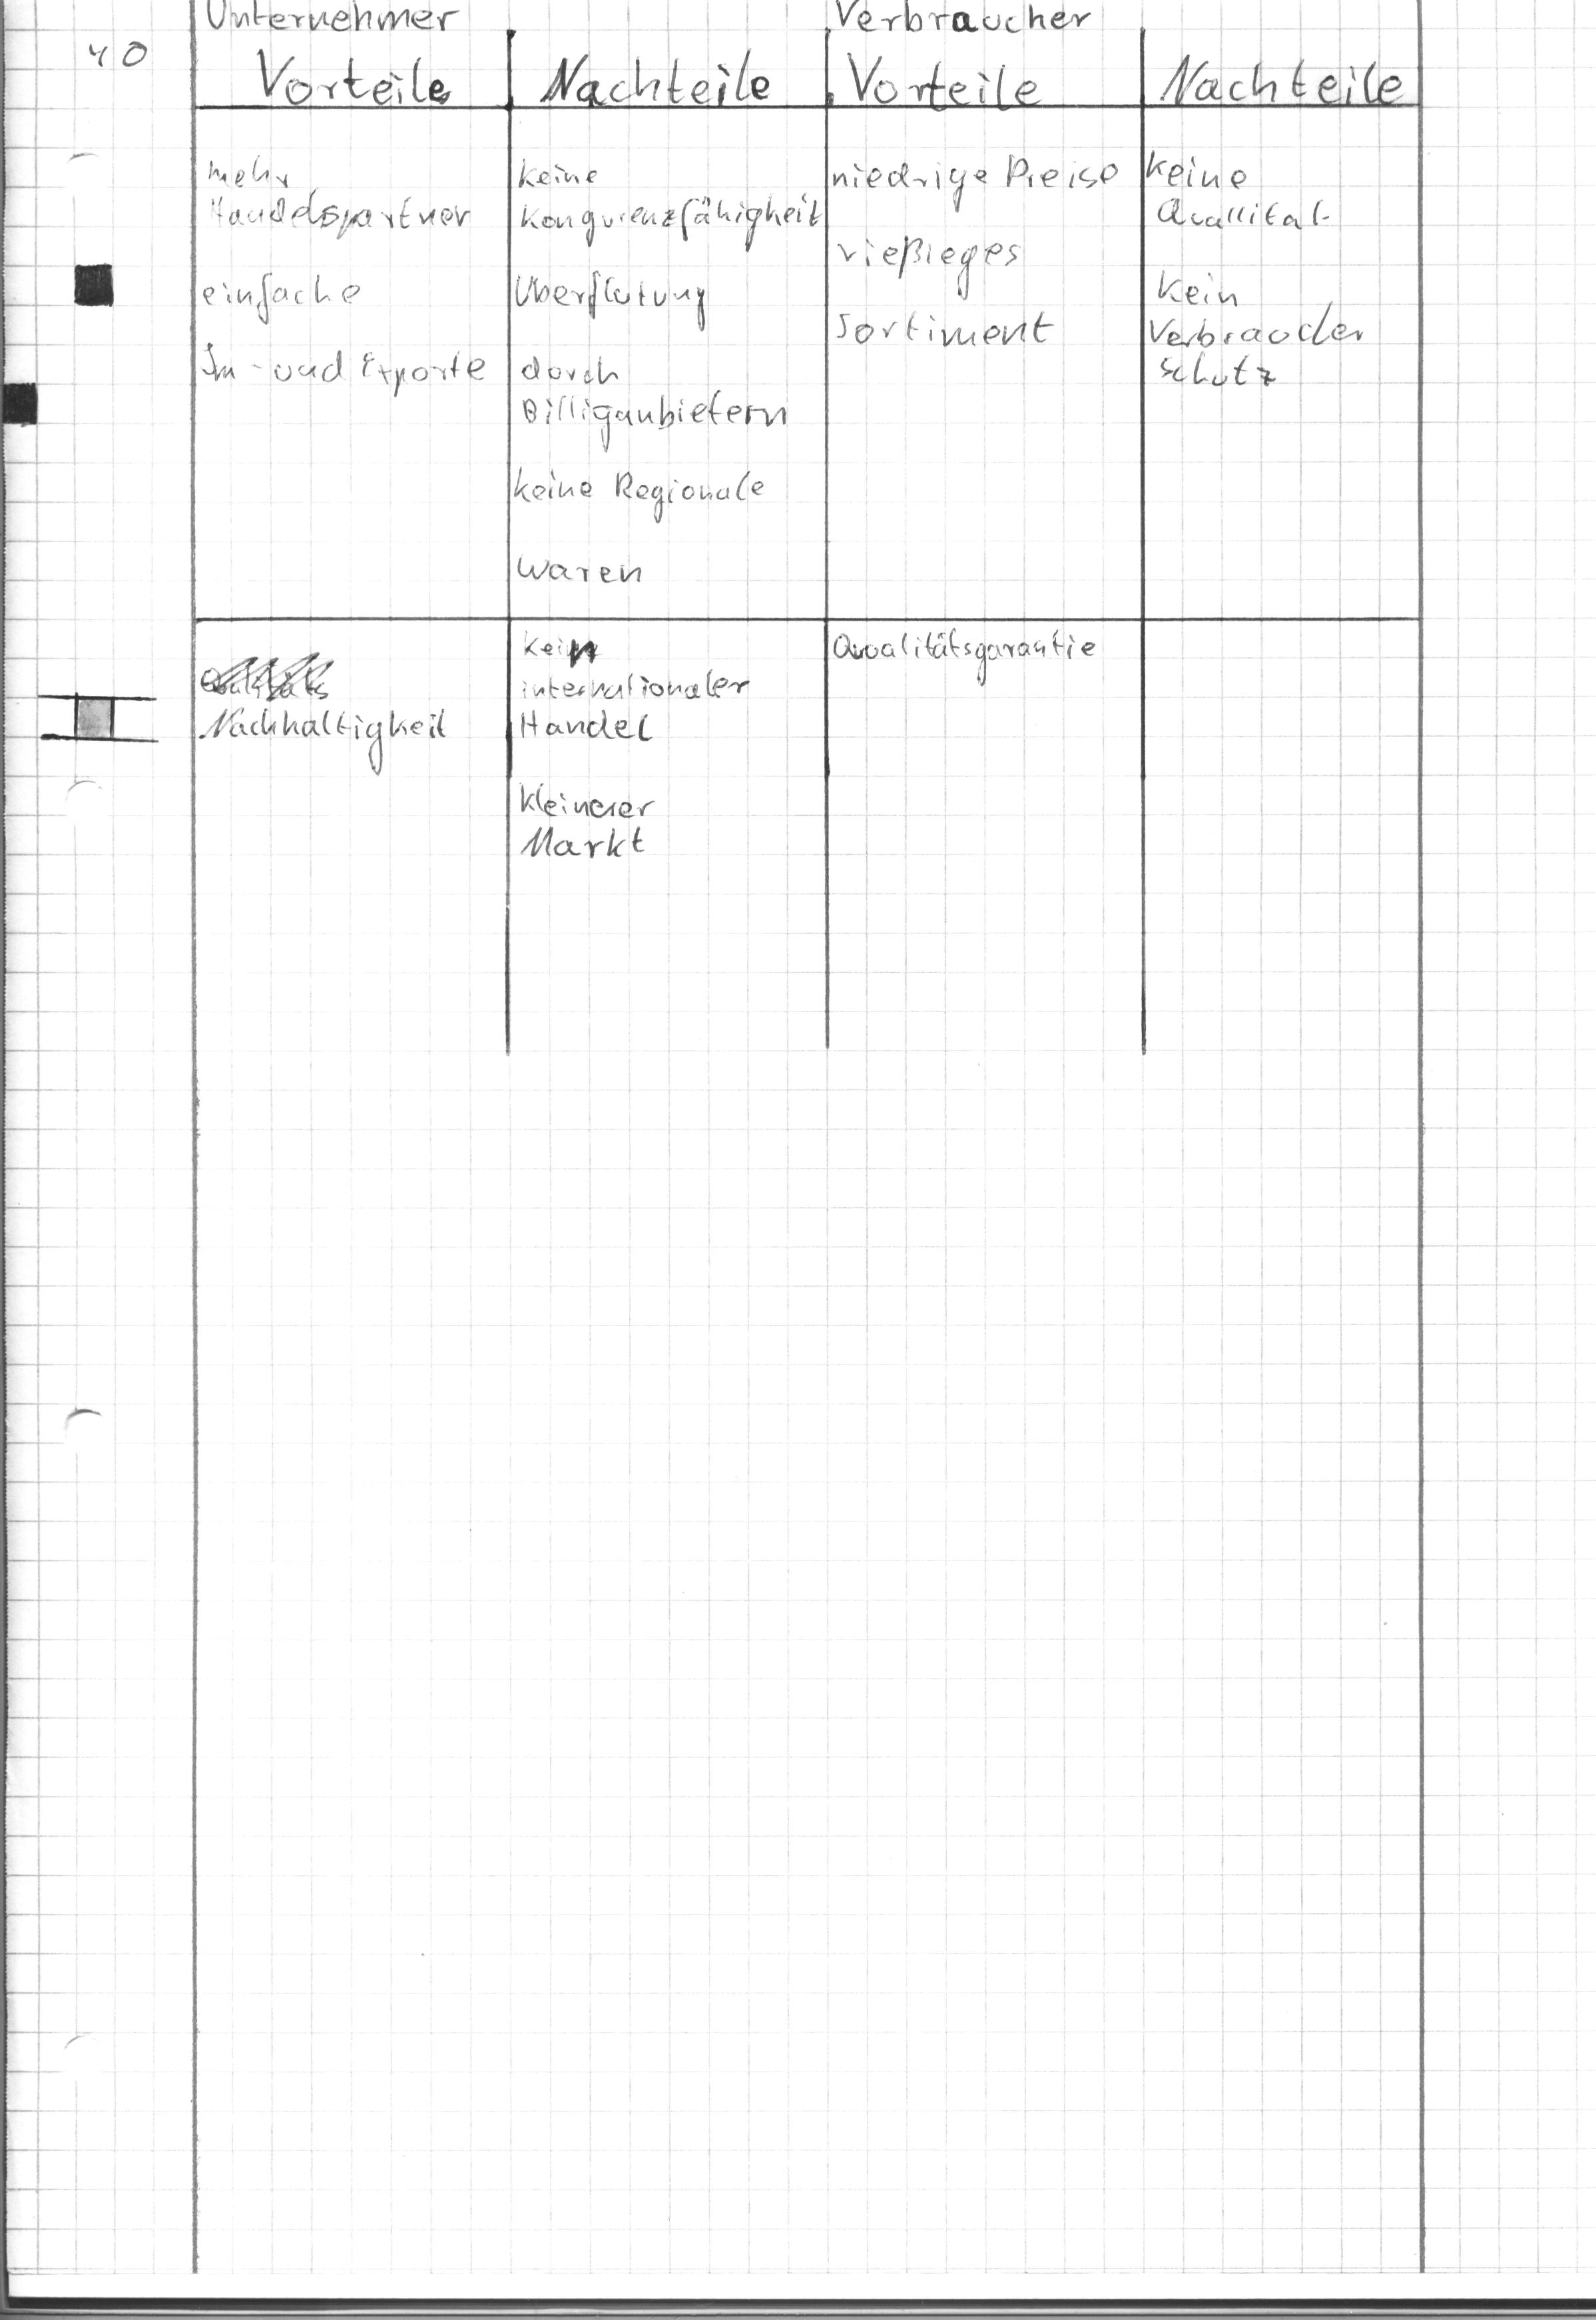 Unternehmer Verbraucher
40
Vorteile Nachteile Vorteile Nachteile
mehr
Handelspartner
einfache
Im- und Exporte
keine
Konqurenzfähigkeit
Überflutung
durch
Billiganbietern
keine Regionale
Waren
niedrige Preise
rießieges
Sortiment
keine
Quallität
kein
Verbraucher
schutz
Nachhaltigkeit
kein
internationaler
Handel
kleinerer
Markt
Qualitätsgarantie